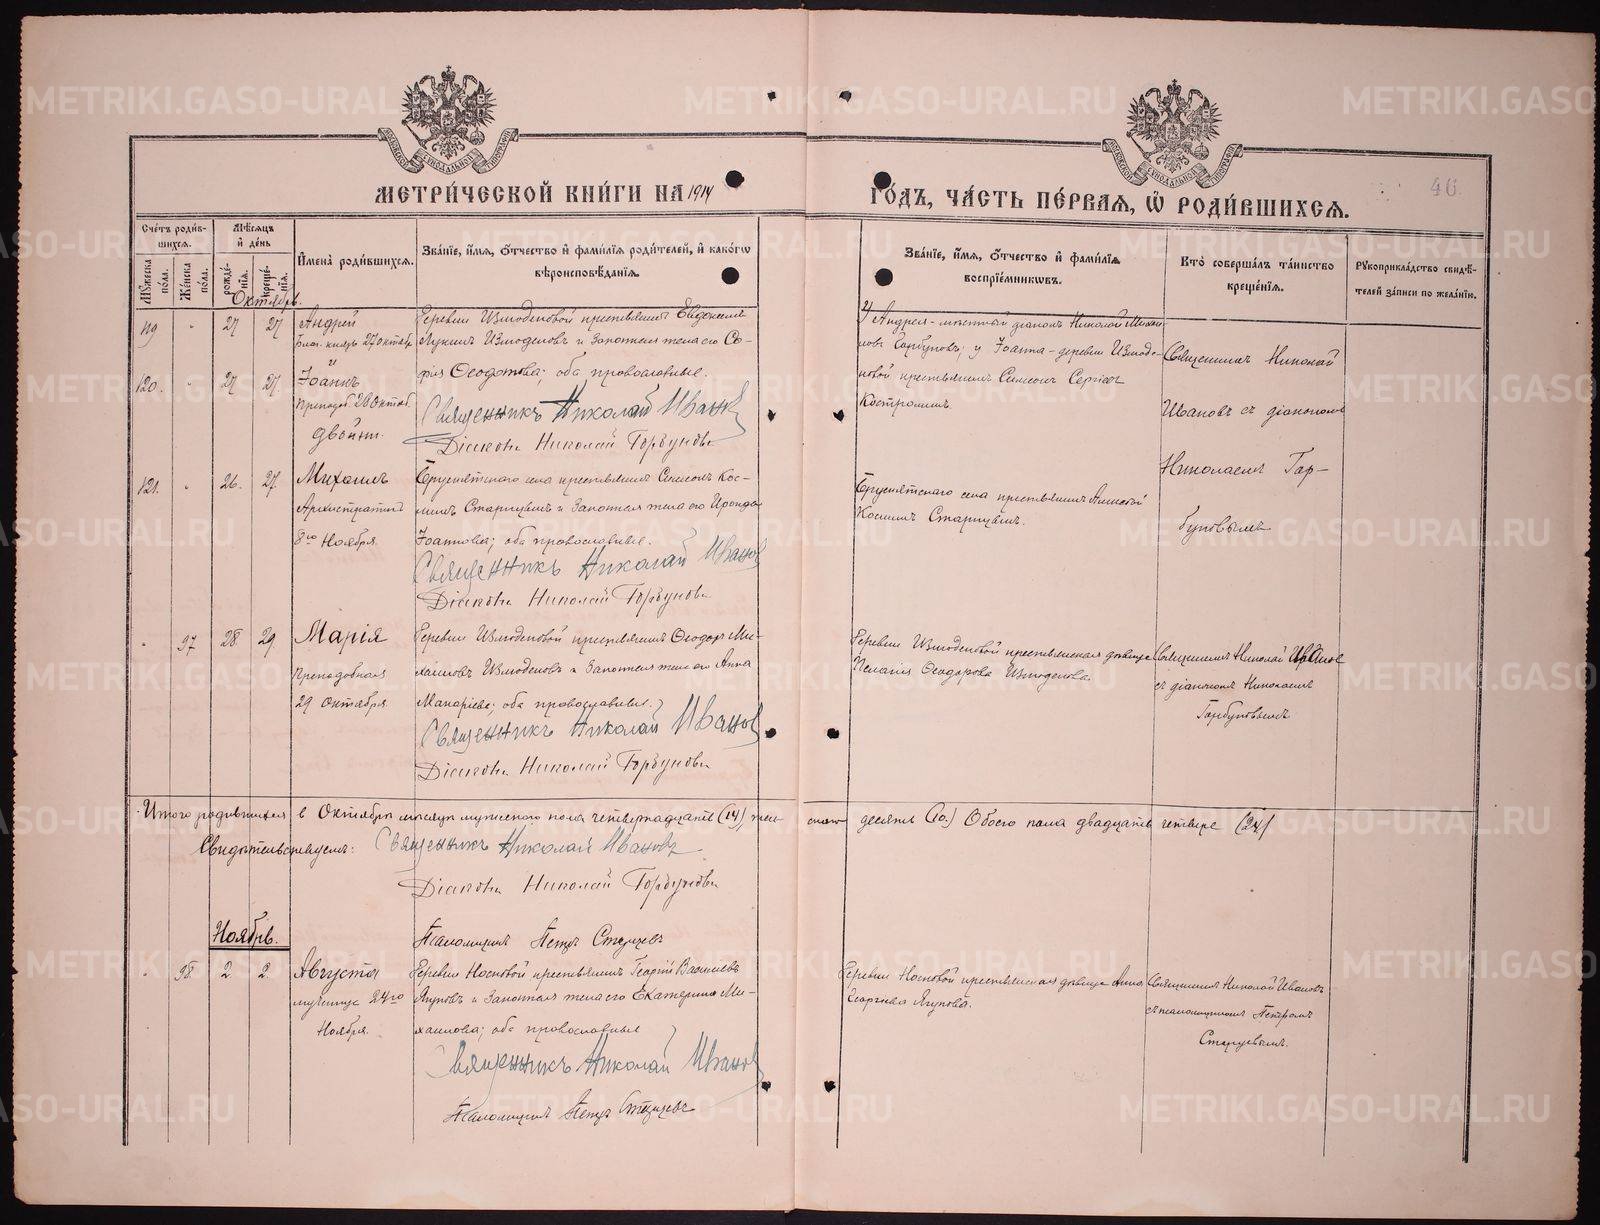 МЕТРИ́ЧЕСКОЙ КНИ́ГИ НА 1914 ГО́ДЪ, ЧА́СТЬ ПЕ́РВАѦ, Ѡ҆ РОДИ́ВШИХСѦ.
40.
Сче́тъ роди́в-
шихсѧ.
Мꙋ́жеска по́ла.
Же́нска по́ла.
Мѣ́сѧцъ и҆ де́нь
рожде́-
нїѧ.
креще́-
нїѧ.
И҆мена̀ роди́вшихсѧ.
Зва́нїе, и҆́мѧ, ѻ҆́тчество и҆ фамил́їѧ роди́телей, и҆ како́гѡ
вѣроисповѣ́данїѧ.
Зва́нїе, и҆́мѧ, ѻ҆́тчество и҆ фами́лїѧ
воспрїе́мникѡвъ.
Кто̀ соверша́лъ та́инство
креще́нїѧ.
Рꙋкоприкла́дство свидѣ́-
телей за́писи по жела́нїю.
Октябрь.
119 " 27 27
Андрей
благ. князь 27 октябр.
и
120. " 27 27
Іоаннъ
Преподоб. 28 октяб.
двойни.
Деревни Измоденовой крестьянинъ Евдокимъ
Лукинъ Измоденовъ и Законная жена его Со-
фія Ѳеодотова; оба православные.
Священникъ Николай Ивановъ
Діаконъ Николай Горбуновъ
У Андрея - мѣстный діаконъ Николай Михаи-
ловъ Горбуновъ; у Іоанна - деревни Измоде-
новой крестьянинъ Симеонъ Сергіевъ
Костроминъ.
Священникъ Николай
Ивановъ съ діакономъ
Николаемъ Гор-
буновымъ
121. " 26. 27.
Михаилъ
Архистратигъ
8го Ноября
Бруснятского села крестьянинъ Симеонъ Кос-
минъ Старицынъ и Законная жена его
Іоаннова; оба православные.
Священникъ Николай Ивановъ
Діаконъ Николай Горбуновъ
Бруснятского села крестьянинъ Алексѣй
Косминъ Старицынъ.
" 97 28. 29.
Марія
Преподобная
29 октября
Деревни Измоденовой крестьянинъ Ѳеодоръ Ми-
хаиловъ Измоденовъ и Законная жена его Анна
Макаріева; оба православные.
Священникъ Николай Ивановъ
Діаконъ Николай Горбуновъ
Деревни Измоденовой крестьянская дѣвица
Пелагія Ѳеодорова Измоденова.
Священникъ Николай Ивановъ
съ діакономъ Николаемъ
Горбуновымъ
Итого родившихся въ Октябрѣ мѣсяцѣ мужескаго пола четырнадцать (14), жен-
скаго десять (10.) Обоего пола двадцать четыре (24)
Свидѣтельствуемъ: Священникъ Николай Ивановъ
Діаконъ Николай Горбуновъ
Псаломщикъ Петръ Старцевъ
Ноябрь.
" 98. 2. 2.
Августа
мученица 24го
Ноября.
Деревни Носковой крестьянинъ Георгій Василіевъ
Ягуповъ и Законная жена его Екатерина Ми-
хаилова; оба православные
Священникъ Николай Ивановъ
Псаломщикъ Петръ Старцевъ
Деревни Носковой крестьянская дѣвица Анна
Георгіева Ягупова.
Священникъ Николай Ивановъ
съ псаломщикомъ Петромъ
Старцевымъ.
METRIKI.GASO-URAL.RU